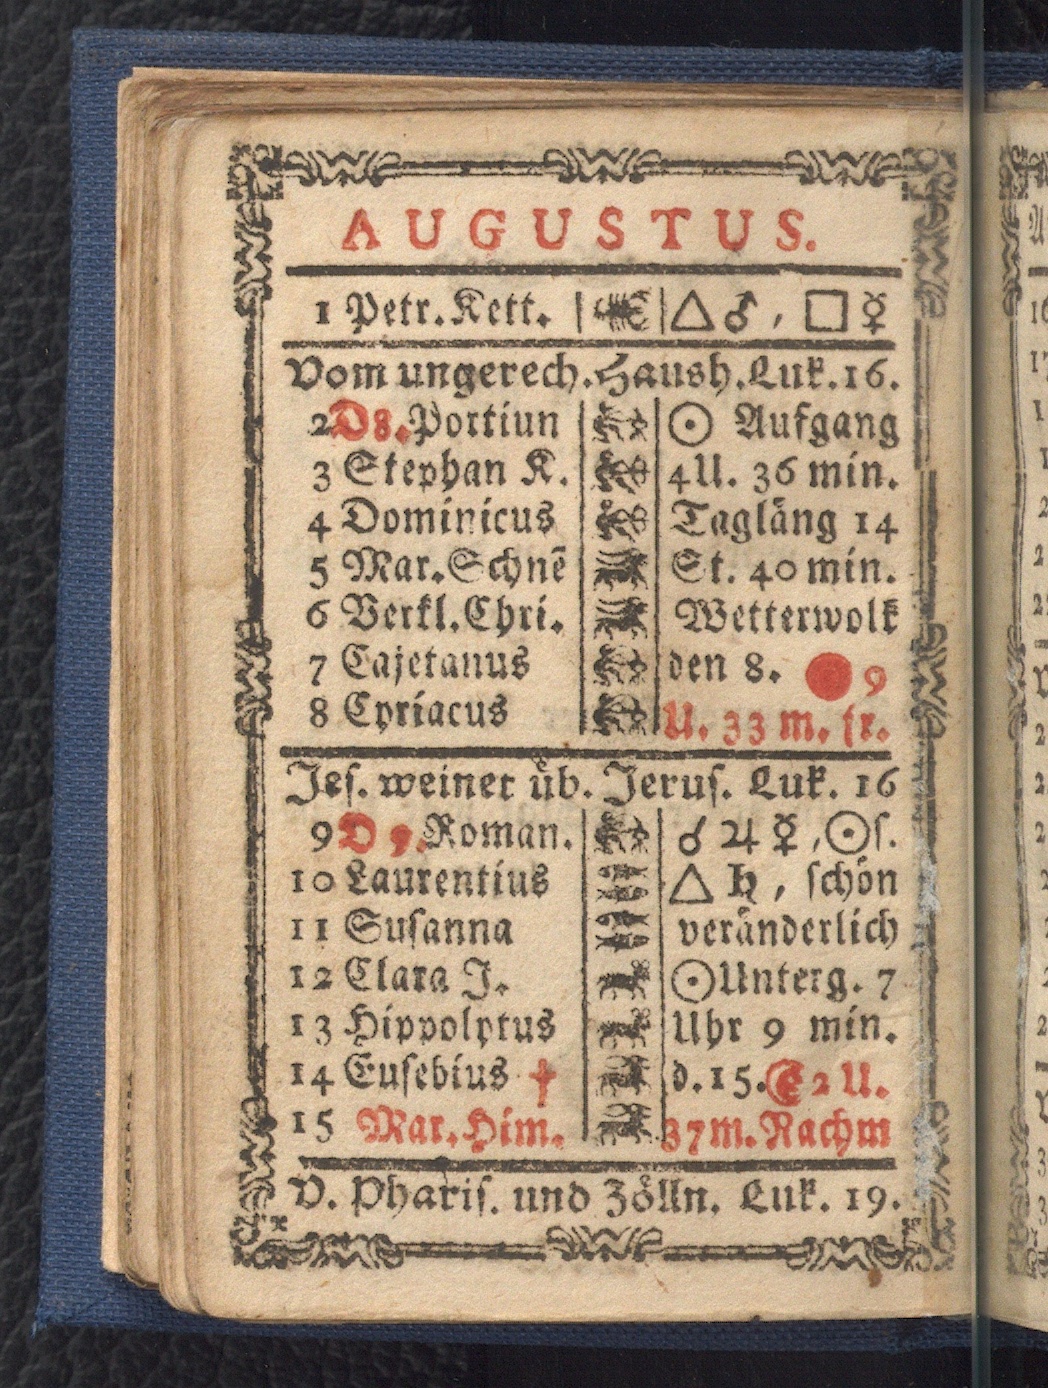 AUGUSTUS.
1 Petr. Kett. △ ♂ , □ ☿
Vom ungerech. Haush. Luk. 16.
2 D 8. Portiun ☉ Aufgang
3 Stephan K. 4 U. 36 min.
4 Dominicus Tagläng 14
5 Mar. Schnē St. 40 min.
6 Verkl. Chri. Wetterwolk
7 Cajetanus den 8. ● 9
8 Cyriacus U. 33 m. fr.
Jes. weinet üb. Jerus. Luk. 16
9 D 9. Roman. ☌ ♃ ☿ , ☉ ſ.
10 Laurentius △ ♄ , ſchön
11 Suſanna veränderlich
12 Clara J. ☉ Unterg. 7
13 Hippolytus Uhr 9 min.
14 Euſebius † d. 15. ☾ 2 U.
15 Mar. Him. 37 m. Nachm
V. Phariſ. und Zölln. Luk. 19.